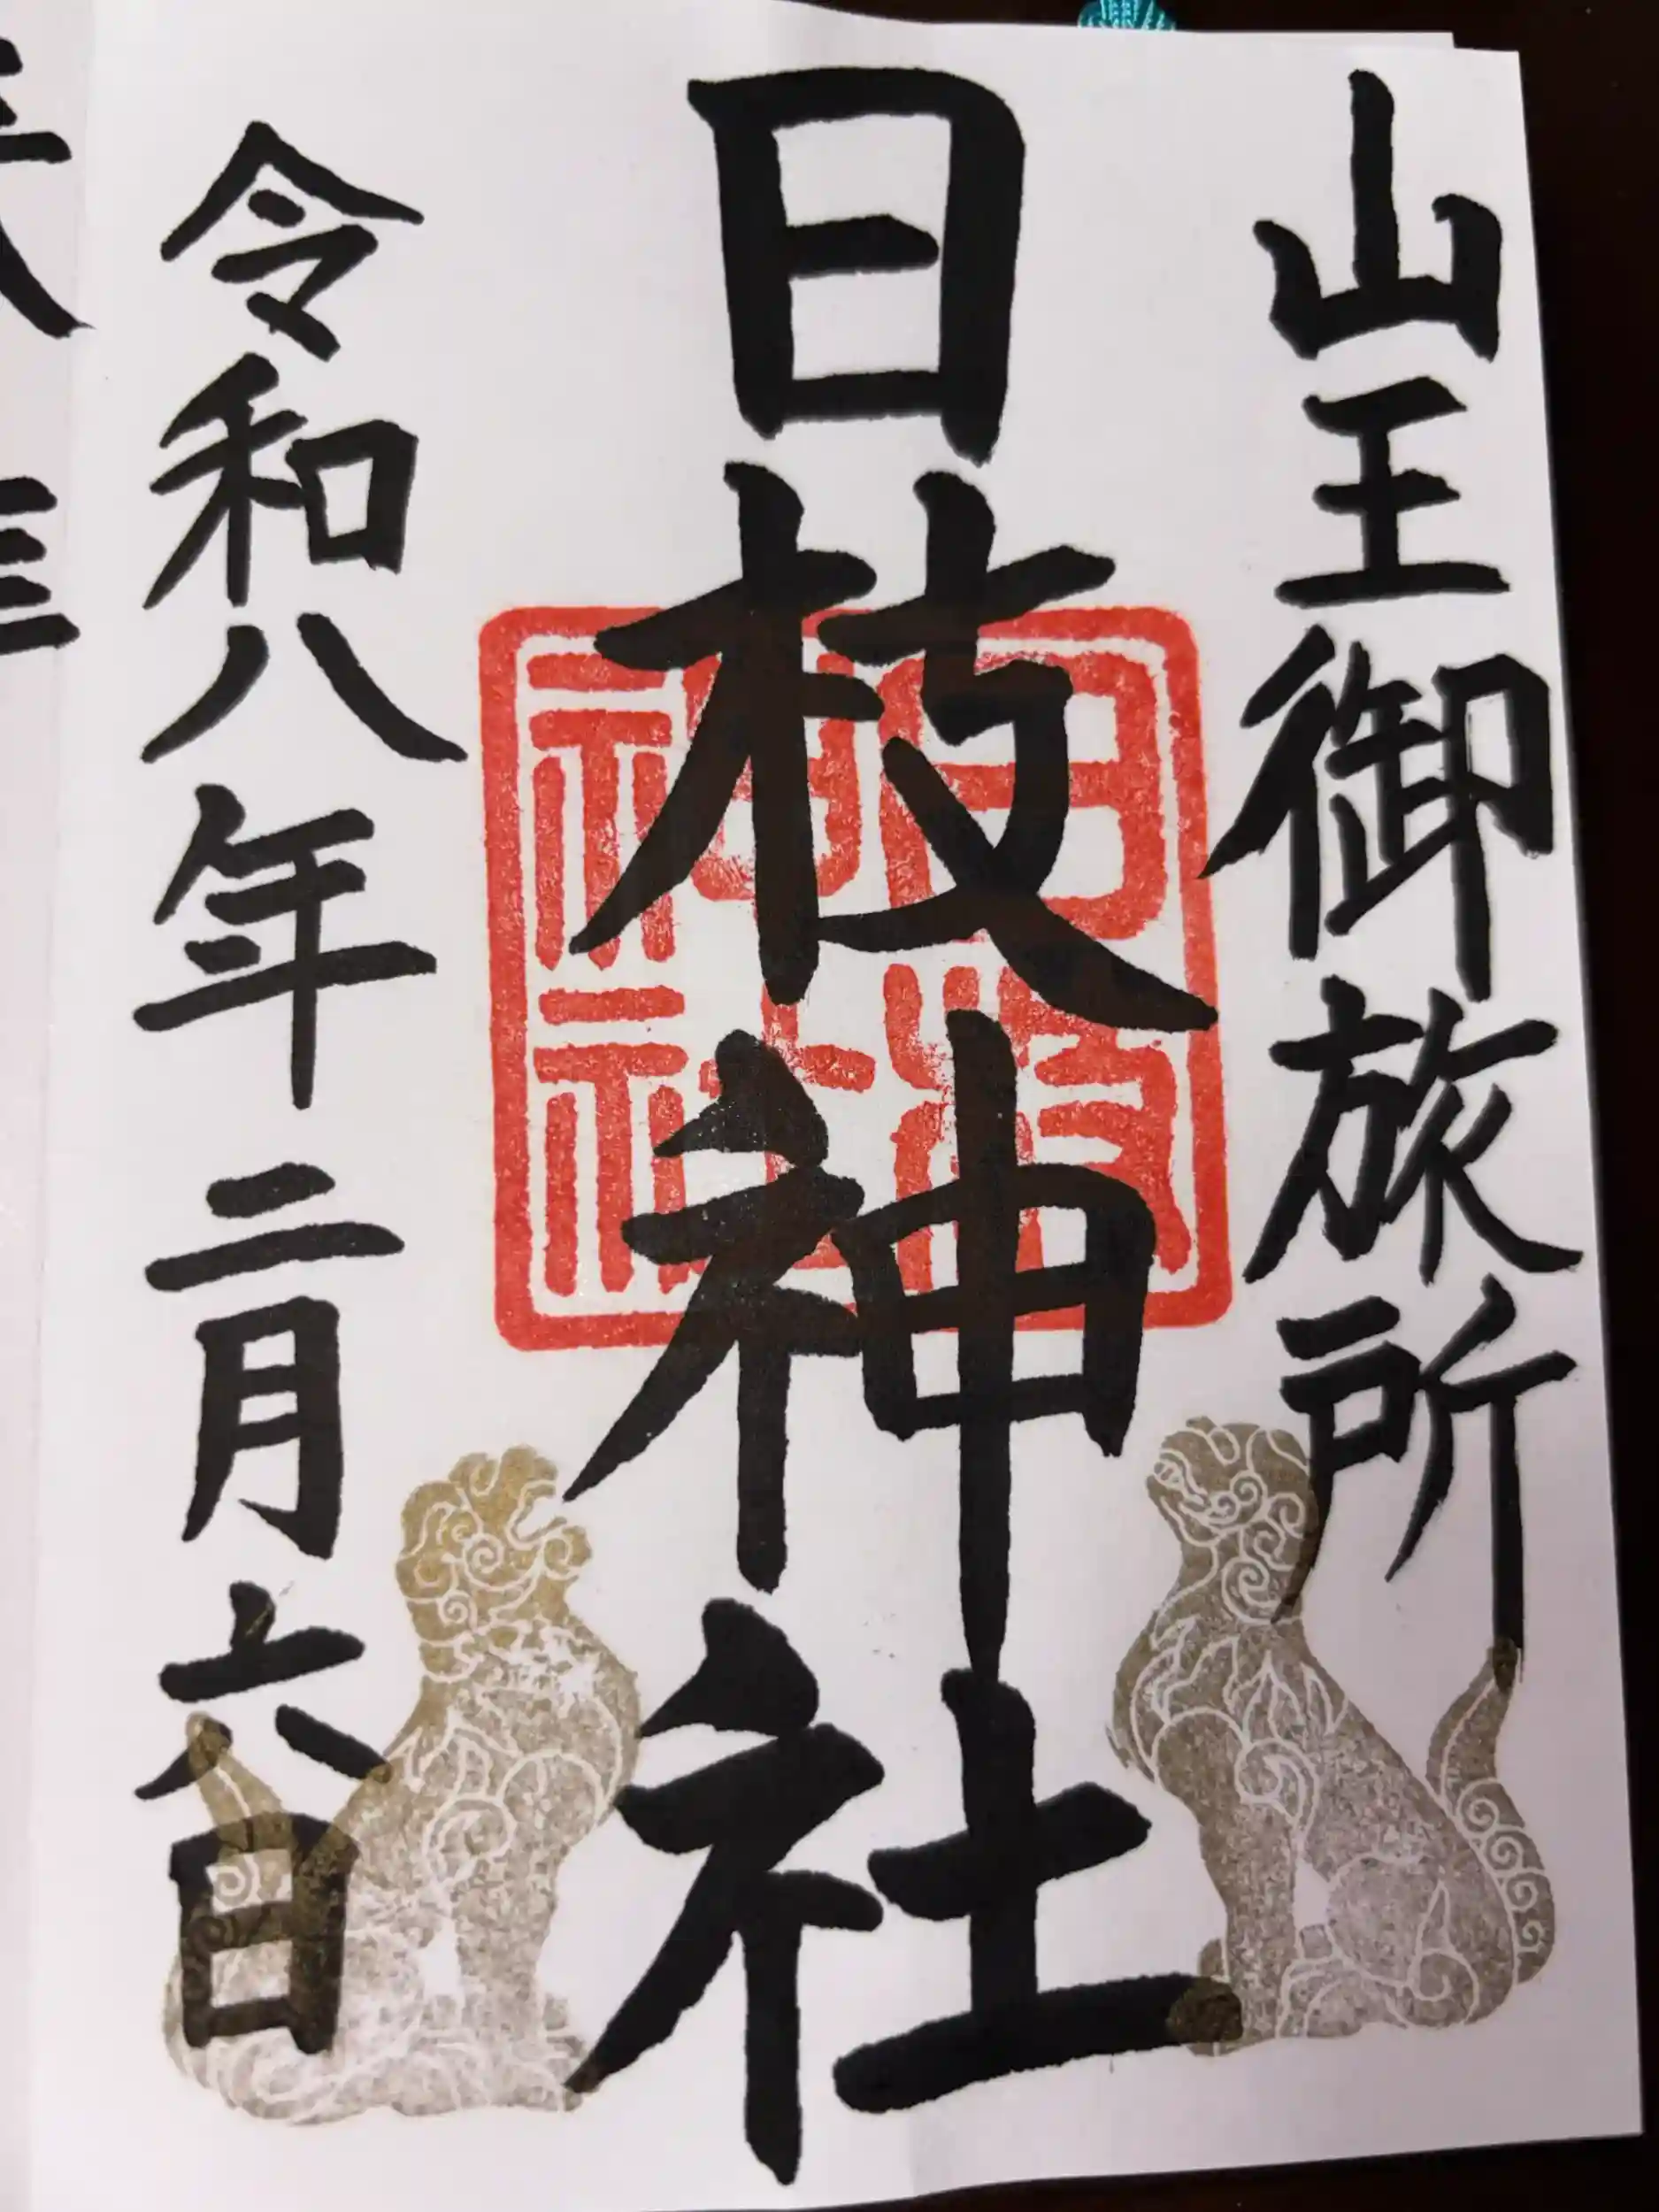 山王御旅所
日枝神社
令和八年二月六日
日枝神社